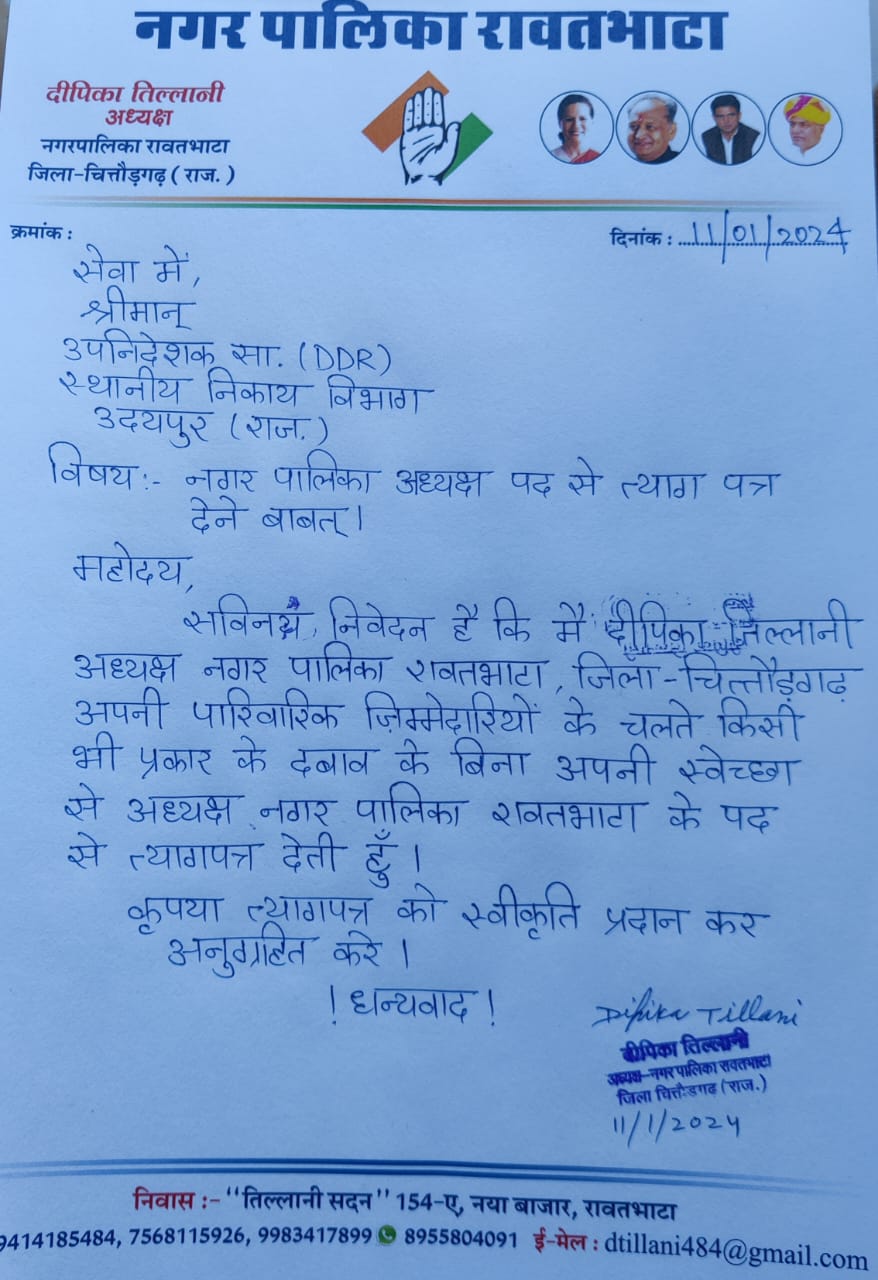 नगर पालिका रावतभाटा
दीपिका तिल्लानी
अध्यक्ष
नगरपालिका रावतभाटा
जिला-चित्तौड़गढ़ ( राज. )
क्रमांक :
दिनांक : 11/01/2024
सेवा में,
श्रीमान्
उपनिदेशक सा. (DDR)
स्थानीय निकाय विभाग
उदयपुर (राज.)
विषय:- नगर पालिका अध्यक्ष पद से त्याग पत्र
देने बाबत्।
महोदय,
सविनय, निवेदन है कि मैं दीपिका तिल्लानी
अध्यक्ष नगर पालिका रावतभाटा, जिला-चित्तौड़गढ़
अपनी पारिवारिक ज़िम्मेदारियों के चलते किसी
भी प्रकार के दबाव के बिना अपनी स्वेच्छा
से अध्यक्ष नगर पालिका रावतभाटा के पद
से त्यागपत्र देती हूँ।
कृपया त्यागपत्र को स्वीकृति प्रदान कर
अनुग्रहित करे।
! धन्यवाद !
Dipika Tillani
दीपिका तिल्लानी
अध्यक्ष-नगर पालिका रावतभाटा
जिला चित्तौडगढ (राज.)
11/1/2024
निवास :- "तिल्लानी सदन" 154-ए, नया बाजार, रावतभाटा
9414185484, 7568115926, 9983417899 8955804091 ई-मेल : dtillani484@gmail.com